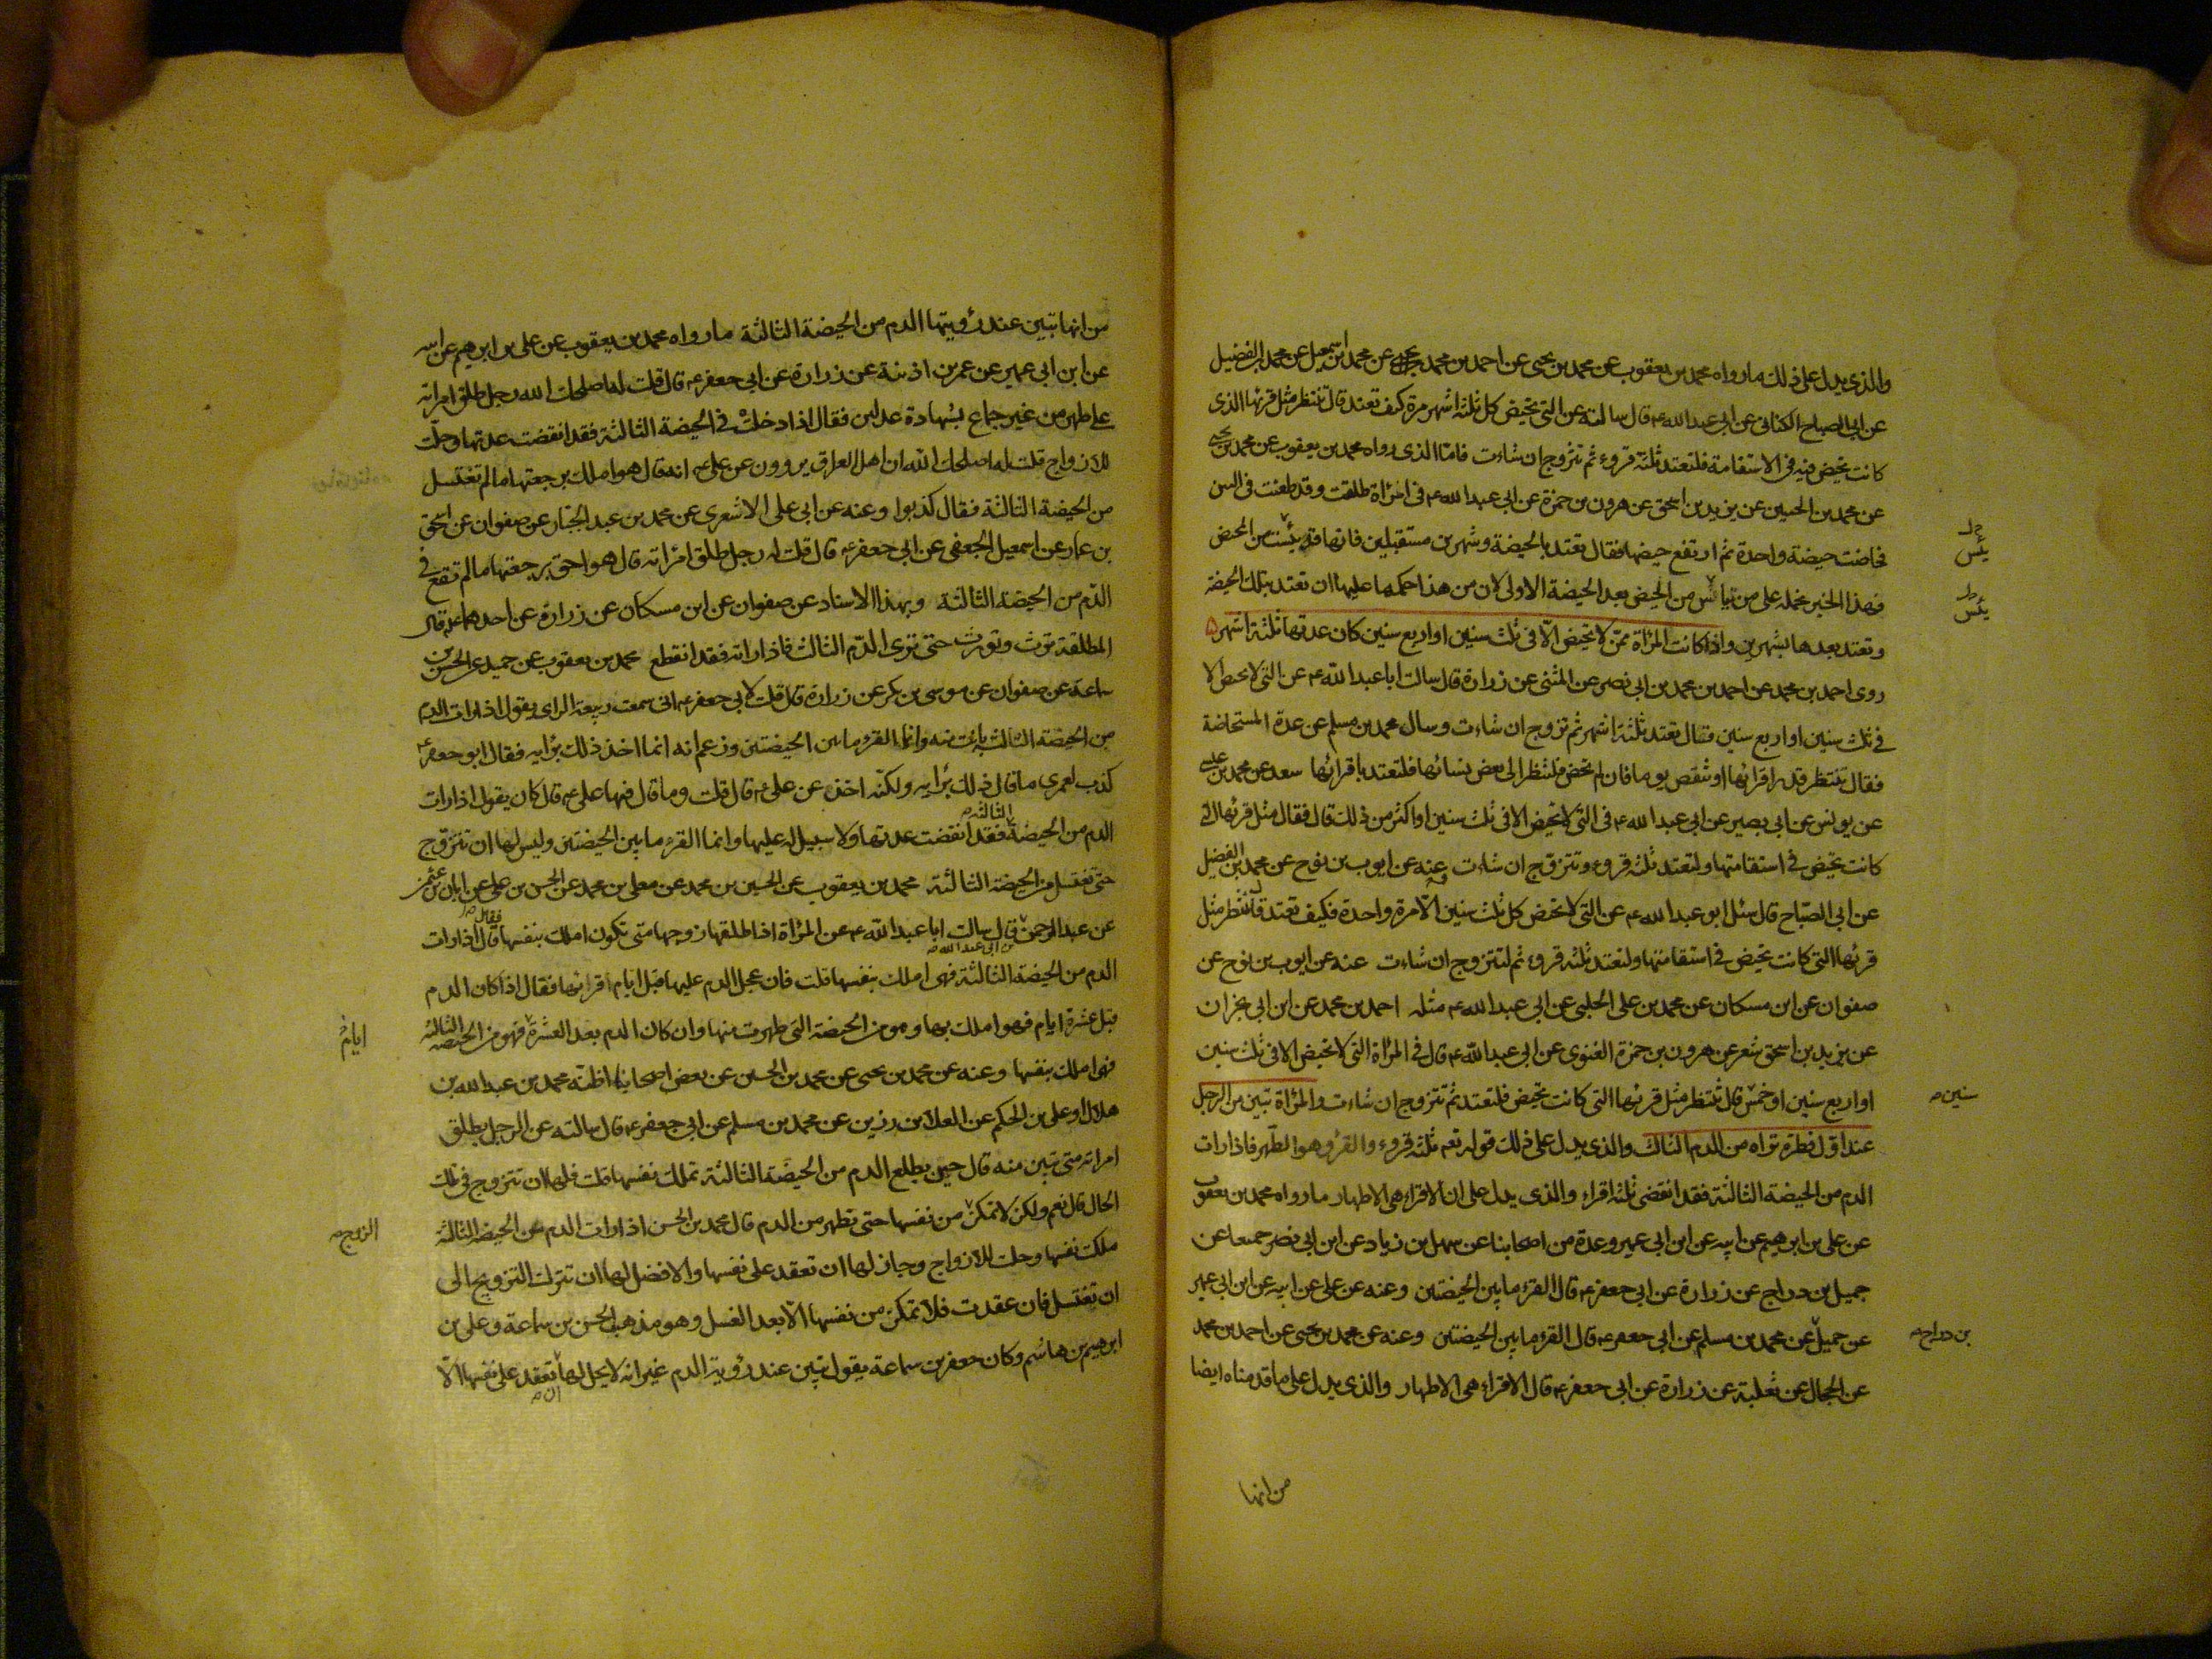 والذى يدل على ذلك ما رواه محمد بن يعقوب عن محمد بن يحيى عن احمد بن محمد عن محمد بن اسمعيل عن محمد بن الفضيل
عن ابى الصباح الكنانى عن ابى عبد الله ع قال سالته عن التى تحيض كل ثلثة اشهر مرة كيف تعتد قال تنتظر مثل قرئها الذى
كانت تحيض فيه فى الاستقامة فلتعتد ثلثة قروء ثم تتزوج ان شاءت فامّا الذى رواه محمد بن يعقوب عن محمد بن يحيى
عن محمد بن الحسين عن يزيد بن اسحق عن هرون بن حمزة عن ابى عبد الله ع فى امرأة طلقت وقد طعنت فى السن
فحاضت حيضة واحدة ثم ارتفع حيضها فقال تعتد بالحيضة وشهرين مستقبلين فانها قد يئست من المحيض
فهذا الخبر نحمله على من تيأس من الحيض بعد الحيضة الاولى لان من هذا حكمها عليها ان تعتد بتلك الحيضة
وتعتد بعدها بشهرين واذا كانت المرأة ممن لا تحيض الّا فى ثلث سنين او اربع سنين كان عدتها ثلثة اشهر
روى احمد بن محمد عن احمد بن محمد بن ابى نصر عن المثنى عن زرارة قال سالت ابا عبد الله ع عن التى لا تحيض الا
فى ثلث سنين او اربع سنين فقال تعتد ثلثة اشهر ثم تزوج ان شاءت وسال محمد بن مسلم عن عدة المستحاضة
فقال تنتظر قدر اقرائها او تنقص يوما فان لم تحض فلتنظر الى بعض نسائها فلتعتد باقرائها سعد عن محمد بن عيسى
عن يونس عن ابى بصير عن ابى عبد الله ع فى التى لا تحيض الا فى ثلث سنين او اكثر من ذلك قال فقال مثل قرئها التى
كانت تحيض فى استقامتها ولتعتد ثلثة قروء وتتزوج ان شاءت وعنه عن ايوب بن نوح عن محمد بن الفضيل
عن ابى الصباح قال سئل ابو عبد الله ع عن التى لا تحيض كل ثلث سنين الّا مرة واحدة فكيف تعتد قال تنتظر مثل
قرئها التى كانت تحيض فى استقامتها ولتعتد ثلثة قروء ثم لتتزوج ان شاءت عنه عن ايوب بن نوح عن
صفوان عن ابن مسكان عن محمد بن على الحلبى عن ابى عبد الله ع مثله احمد بن محمد عن ابن ابى نجران
عن يزيد بن اسحق شعر عن هرون بن حمزة الغنوى عن ابى عبد الله ع قال فى المرأة التى لا تحيض الا فى ثلث سنين
او اربع سنين او خمس قال تنتظر مثل قرئها التى كانت تحيض فلتعتد ثم تتزوج ان شاءت والمرأة تبين من الرجل
عند اول قطرة تراه من الدم الثالث والذى يدل على ذلك قوله تعم ثلثة قروء والقرؤ هو الطهر فاذا رات
الدم من الحيضة الثالثة فقد انقضى ثلثة اقراء والذى يدل على ان الاقراء هى الاطهار ما رواه محمد بن يعقوب
عن على بن ابرهيم عن ابيه عن ابن ابى عمير وعدة من اصحابنا عن سهل بن زياد عن ابن ابى نصر جميعا عن
جميل بن دراج عن زرارة عن ابى جعفر ع قال القرء ما بين الحيضتين وعنه عن على عن ابيه عن ابن ابى عمير
عن جميل عن محمد بن مسلم عن ابى جعفر ع قال القرء ما بين الحيضتين وعنه عن محمد بن يحيى عن احمد بن محمد
عن الحجال عن ثعلبة عن زرارة عن ابى جعفر ع قال الاقراء هى الاطهار والذى يدل على ما قدمناه ايضا
من انها
يئس
يئس
سنين
بن دراج
من انها تبين عند رؤيتها الدم من الحيضة الثالثة ما رواه محمد بن يعقوب عن على بن ابرهيم عن ابيه
عن ابن ابى عمير عن عمر بن اذينة عن زرارة عن ابى جعفر ع قال قلت له اصلحك الله رجل طلق امراته
على طهر من غير جماع بشهادة عدلين فقال اذا دخلت فى الحيضة الثالثة فقد انقضت عدتها وحلت
للازواج قلت له اصلحك الله ان اهل العراق يروون عن على ع انه قال هو املك برجعتها ما لم تغتسل
من الحيضة الثالثة فقال كذبوا وعنه عن ابى على الاشعرى عن محمد بن عبد الجبار عن صفوان عن اسحق
بن عمار عن اسمعيل الجعفى عن ابى جعفر ع قال قلت له رجل طلق امراته قال هو احق برجعتها ما لم تقع فى
الدم من الحيضة الثالثة وبهذا الاسناد عن صفوان عن ابن مسكان عن زرارة عن احدهما ع قال
المطلقة ترث وتورث حتى ترى الدم الثالث فاذا راته فقد انقطع محمد بن يعقوب عن حميد عن الحسن بن
سماعة عن صفوان عن موسى بن بكر عن زرارة قال قلت لابى جعفر ع انى سمعت ربيعة الراى يقول اذا رات الدم
من الحيضة الثالثة بانت منه وانما القرء ما بين الحيضتين وزعم انه انما اخذ ذلك برايه فقال ابو جعفر ع
كذب لعمرى ما قال ذلك برايه ولكنه اخذه عن على ع قال قلت وما قال فيها على ع قال كان يقول اذا رات
الدم من الحيضة الثالثة فقد انقضت عدتها ولا سبيل له عليها وانما القرء ما بين الحيضتين وليس لها ان تتزوج
حتى تغتسل من الحيضة الثالثة محمد بن يعقوب عن الحسين بن محمد عن معلى بن محمد عن الحسن بن على عن ابان بن عثمن
عن عبد الرحمن قال سالت ابا عبد الله ع عن المرأة اذا طلقها زوجها متى تكون املك بنفسها فقال اذا رات
الدم من الحيضة الثالثة فهى املك بنفسها قلت فان عجل الدم عليها قبل ايام اقرائها فقال اذا كان الدم
قبل عشرة ايام فهو املك بها وهو من الحيضة التى طهرت منها وان كان الدم بعد العشرة فهو من الحيضة الثالثة
فهى املك بنفسها وعنه عن محمد بن يحيى عن محمد بن الحسين عن بعض اصحابنا اظنه محمد بن عبد الله بن
هلال او على بن الحكم عن العلا بن رزين عن محمد بن مسلم عن ابى جعفر ع قال سالته عن الرجل يطلق
امراته متى تبين منه قال حين يطلع الدم من الحيضة الثالثة تملك نفسها قلت فلها ان تتزوج فى تلك
الحال قال نعم ولكن لا تمكن من نفسها حتى تطهر من الدم قال محمد بن الحسن اذا رات الدم من الحيضة الثالثة
ملكت نفسها وحلت للازواج وجاز لها ان تعقد على نفسها والافضل لها ان تترك التزويج الى
ان تغتسل فان عقدت فلا تمكن من نفسها الّا بعد الغسل وهو مذهب الحسن بن سماعة وعلى بن
ابرهيم بن هاشم وكان جعفر بن سماعة يقول تبين عند رؤية الدم غير انه لا يحل لها ان تعقد على نفسها الّا
ايام
الزوج